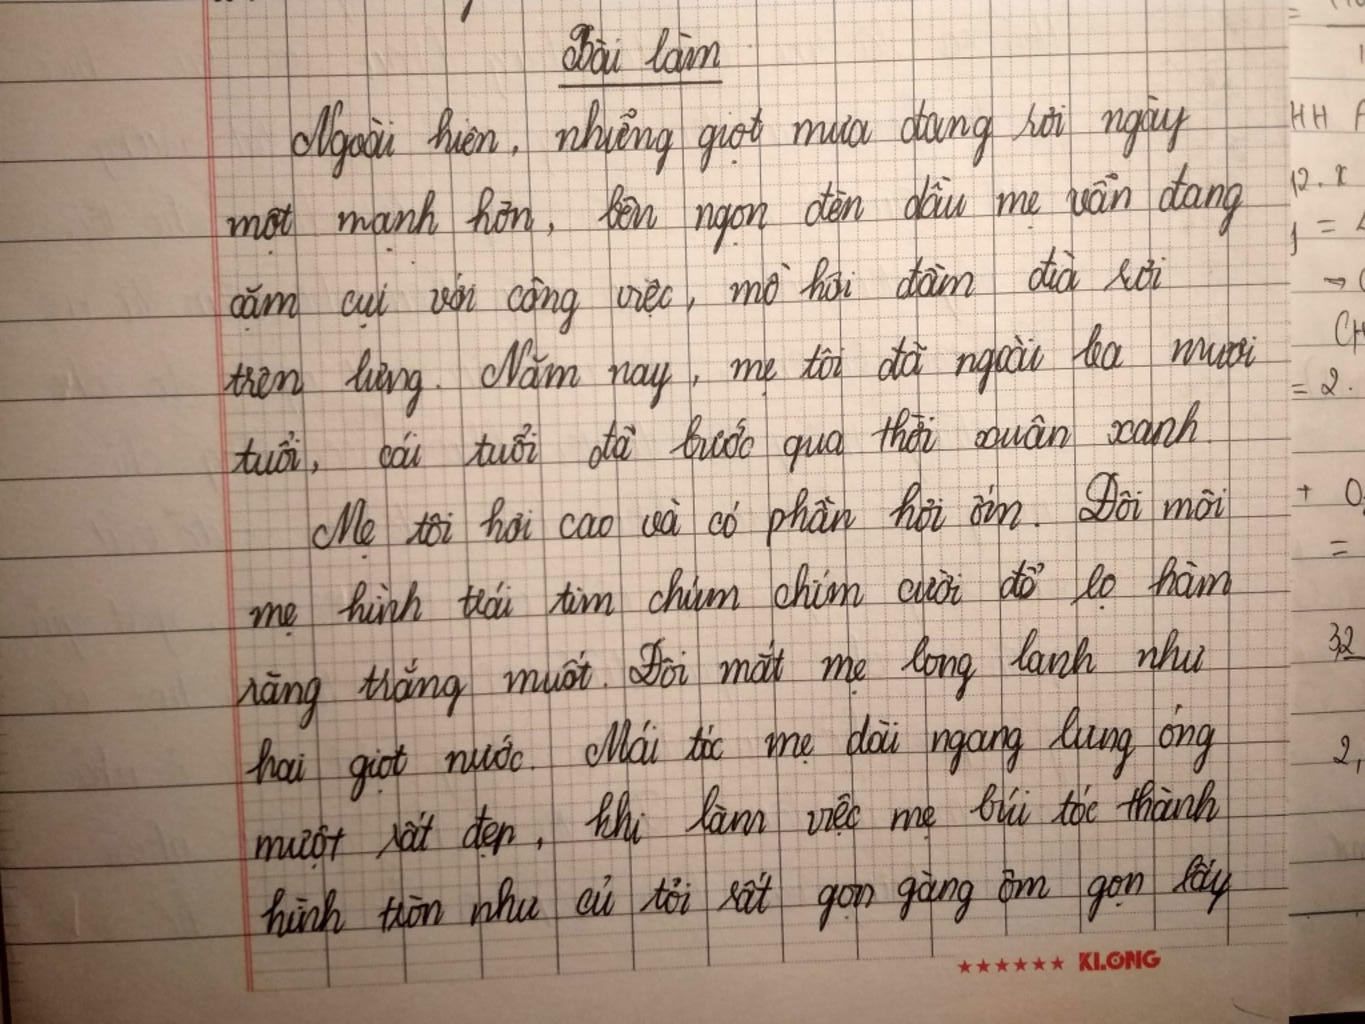 Bài làm
Ngoài hiên, những giọt mưa đang rơi ngày
một mạnh hơn, bên ngọn đèn dầu mẹ vẫn đang
cặm cụi với công việc, mồ hôi đầm đìa rơi
trên lưng. Năm nay, mẹ tôi đã ngoài ba mươi
tuổi, cái tuổi đã bước qua thời xuân xanh.
Mẹ tôi hơi cao và có phần hơi ốm. Đôi môi
mẹ hình trái tim chúm chím cười để lộ hàm
răng trắng muốt. Đôi mắt mẹ long lanh như
hai giọt nước. Mái tóc mẹ dài ngang lưng óng
mượt rất đẹp, khi làm việc mẹ búi tóc thành
hình tròn như củ tỏi rất gọn gàng ôm gọn lấy
KLONG
HH
12. x
= 2.
+ 0,
=
3,2
2,